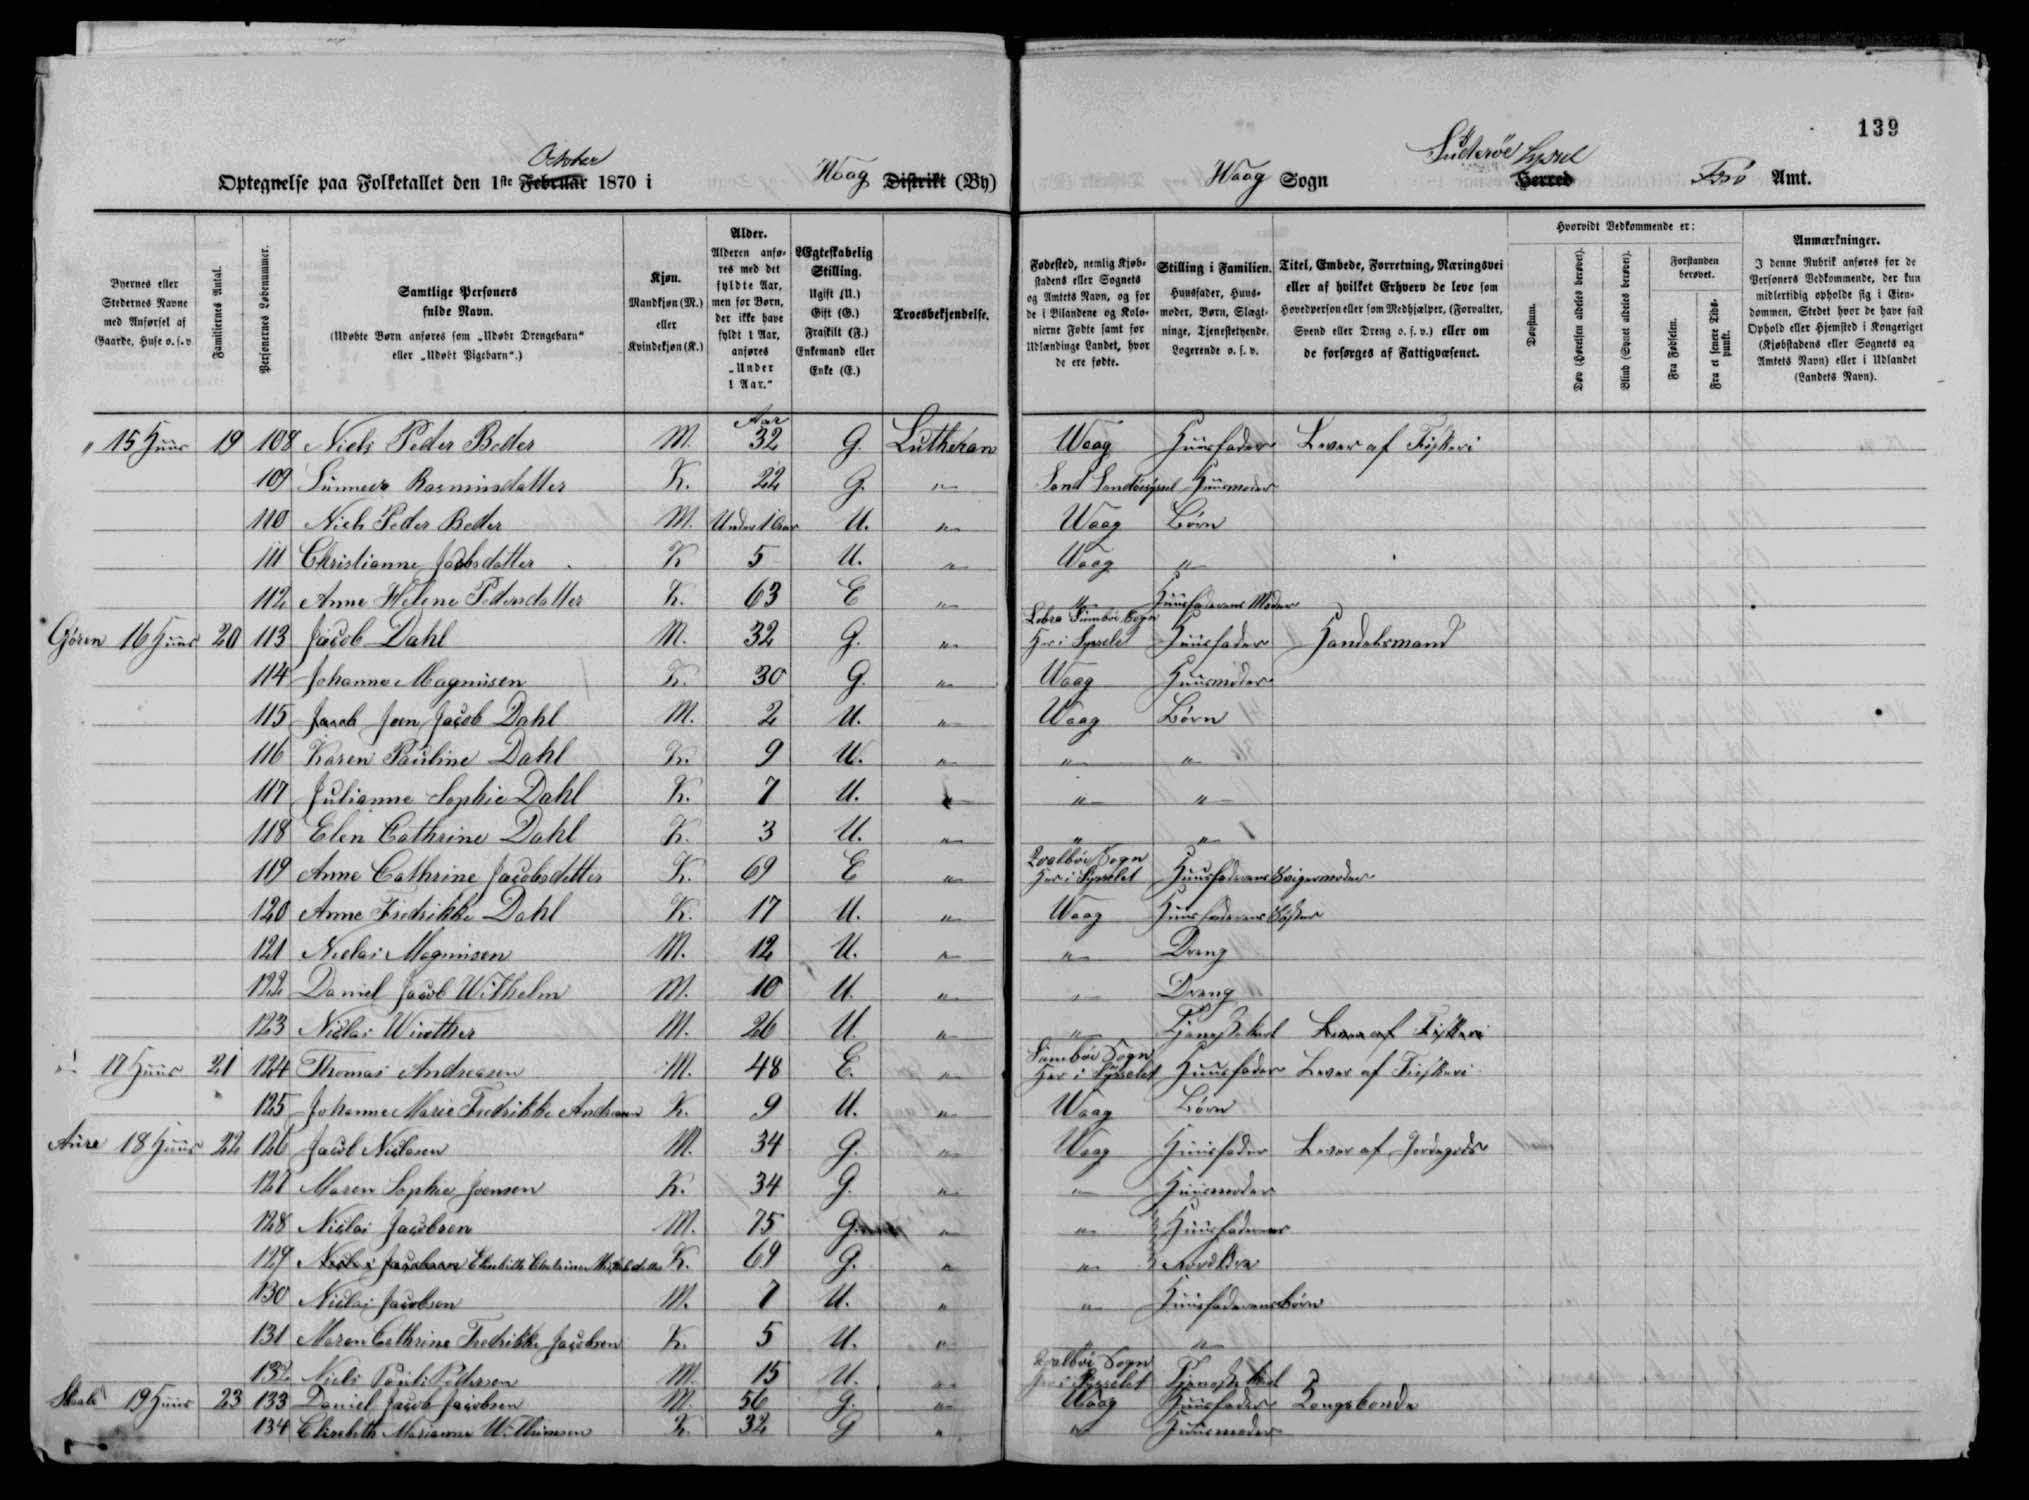 139
Optegnelse paa Folketallet den 1ste Februar October 1870 i Waag Distrikt (By)
Waag Sogn Suderøe Syssel Herred Færø Amt.
Byernes eller Stedernes Navne med Anførsel af Gaarde, Huse o. s. v.
Familiernes Antal.
Personernes Løbenummer.
Samtlige Personers fulde Navn.
(Udøbte Børn anføres som „Udøbt Drengebarn“ eller „Udøbt Pigebarn“.)
Kjøn.
Mandkjøn (M.) eller Kvindekjøn (K.)
Alder.
Alderen anføres med det fyldte Aar, men for Børn, der ikke have fyldt 1 Aar, anføres „Under 1 Aar.“
Ægteskabelig Stilling.
Ugift (U.) Gift (G.) Fraskilt (F.) Enkemand eller Enke (E.)
Troesbekjendelse.
Fødested, nemlig Kjøbstadens eller Sognets og Amtets Navn, og for de i Bilandene og Kolonierne Fødte samt for Udlændinge Landet, hvor de ere fødte.
Stilling i Familien.
Huusfader, Huusmoder, Børn, Slægtninge, Tjenestetyende. Logerende o. s. v.
Titel, Embede, Forretning, Næringsvei eller af hvilket Erhverv de leve som Hovedperson eller som Medhjælper, (Forvalter, Svend eller Dreng o. s. v.) eller om de forsørges af Fattigvæsenet.
Hvorvidt Vedkommende er:
Døvstum.
Døv (Hørelsen aldeles berøvet).
Blind (Synet aldeles berøvet).
Forstanden berøvet.
Fra Fødselen.
Fra et senere Tidspunkt.
Anmærkninger.
I denne Rubrik anføres for de Personers Vedkommende, der kun midlertidig opholde sig i Eiendommen, Stedet hvor de have fast Ophold eller Hjemsted i Kongeriget (Kjøbstadens eller Sognets og Amtets Navn) eller i Udlandet (Landets Navn).
" 15 Huus 19 108 Niels Peder Beder M. Aar 32 G. Lutheran Waag Huusfader Lever af Fiskeri
109 Sunneva Rasmusdatter K. 22 G. " Sand Sandøesyssel Huusmoder
110 Niels Peder Beder M. Under 1 Aar U. " Waag Børn
111 Christianne Jacobsdatter K 5 U. " Waag "
112 Anne Helene Pedersdatter K. 63 E " " Huusfaderens Moder
Gøren 16 Huus 20 113 Jacob Dahl M. 32 G. " Lobra Sumbøe Sogn Her i Sysselet Huusfader Handelsmand
114 Johanne Magnusen K. 30 G. " Waag Huusmoder
115 Jacob Joen Jacob Dahl M. 2 U. " Waag Børn
116 Karen Pauline Dahl K. 9 U. " " "
117 Julianne Sophie Dahl K. 7 U. " " "
118 Elen Cathrine Dahl K. 3 U. " " "
119 Anne Cathrine Jacobsdatter K. 69 E " Qvalbøe Sogn Her i Sysselet Huusfaderens Svigermoder
120 Anne Fredrikke Dahl K. 17 U. " Waag Huusfaderens Søster
121 Niclas Magnusen M. 12 U. " " Dreng
122 Daniel Jacob Wilhelm M. 10 U. " " Dreng
123 Niclas Winther M. 26 U. " " Tjenestekarl Lever af Fiskeri
" 17 Huus 21 124 Thomas Andreasen M. 48 E. " Sumbøe Sogn Her i Sysselet Huusfader Lever af Fiskeri
125 Johanne Marie Fredrikke Andreasen K. 9 U. " Waag Børn
Aure 18 Huus 22 126 Jacob Niclasen M. 34 G. " Waag Huusfader Lever af Jordagods
127 Maren Sophie Joensen K. 34 G. " " Huusmoder
128 Niclas Jacobsen M. 75 G. " " Huusfaderens
129 Niclas Jacobsen Elisabeth K. 69 G. " " Forældre
130 Niclas Jacobsen M. 7 U. " " Huusfaderens børn
131 Maren Cathrine Fredrikke Jacobsen K. 5 U. " " "
132 Niels Pauli Pettersen M. 15 U. " Qvalbøe Sogn Her i Sysselet Tjenestekarl
19 Huus 23 133 Daniel Jacob Jacobsen M. 56 G. " Waag Huusfader Kongsbonde
134 Elisabeth Marianne K. 32 G " " Huusmoder